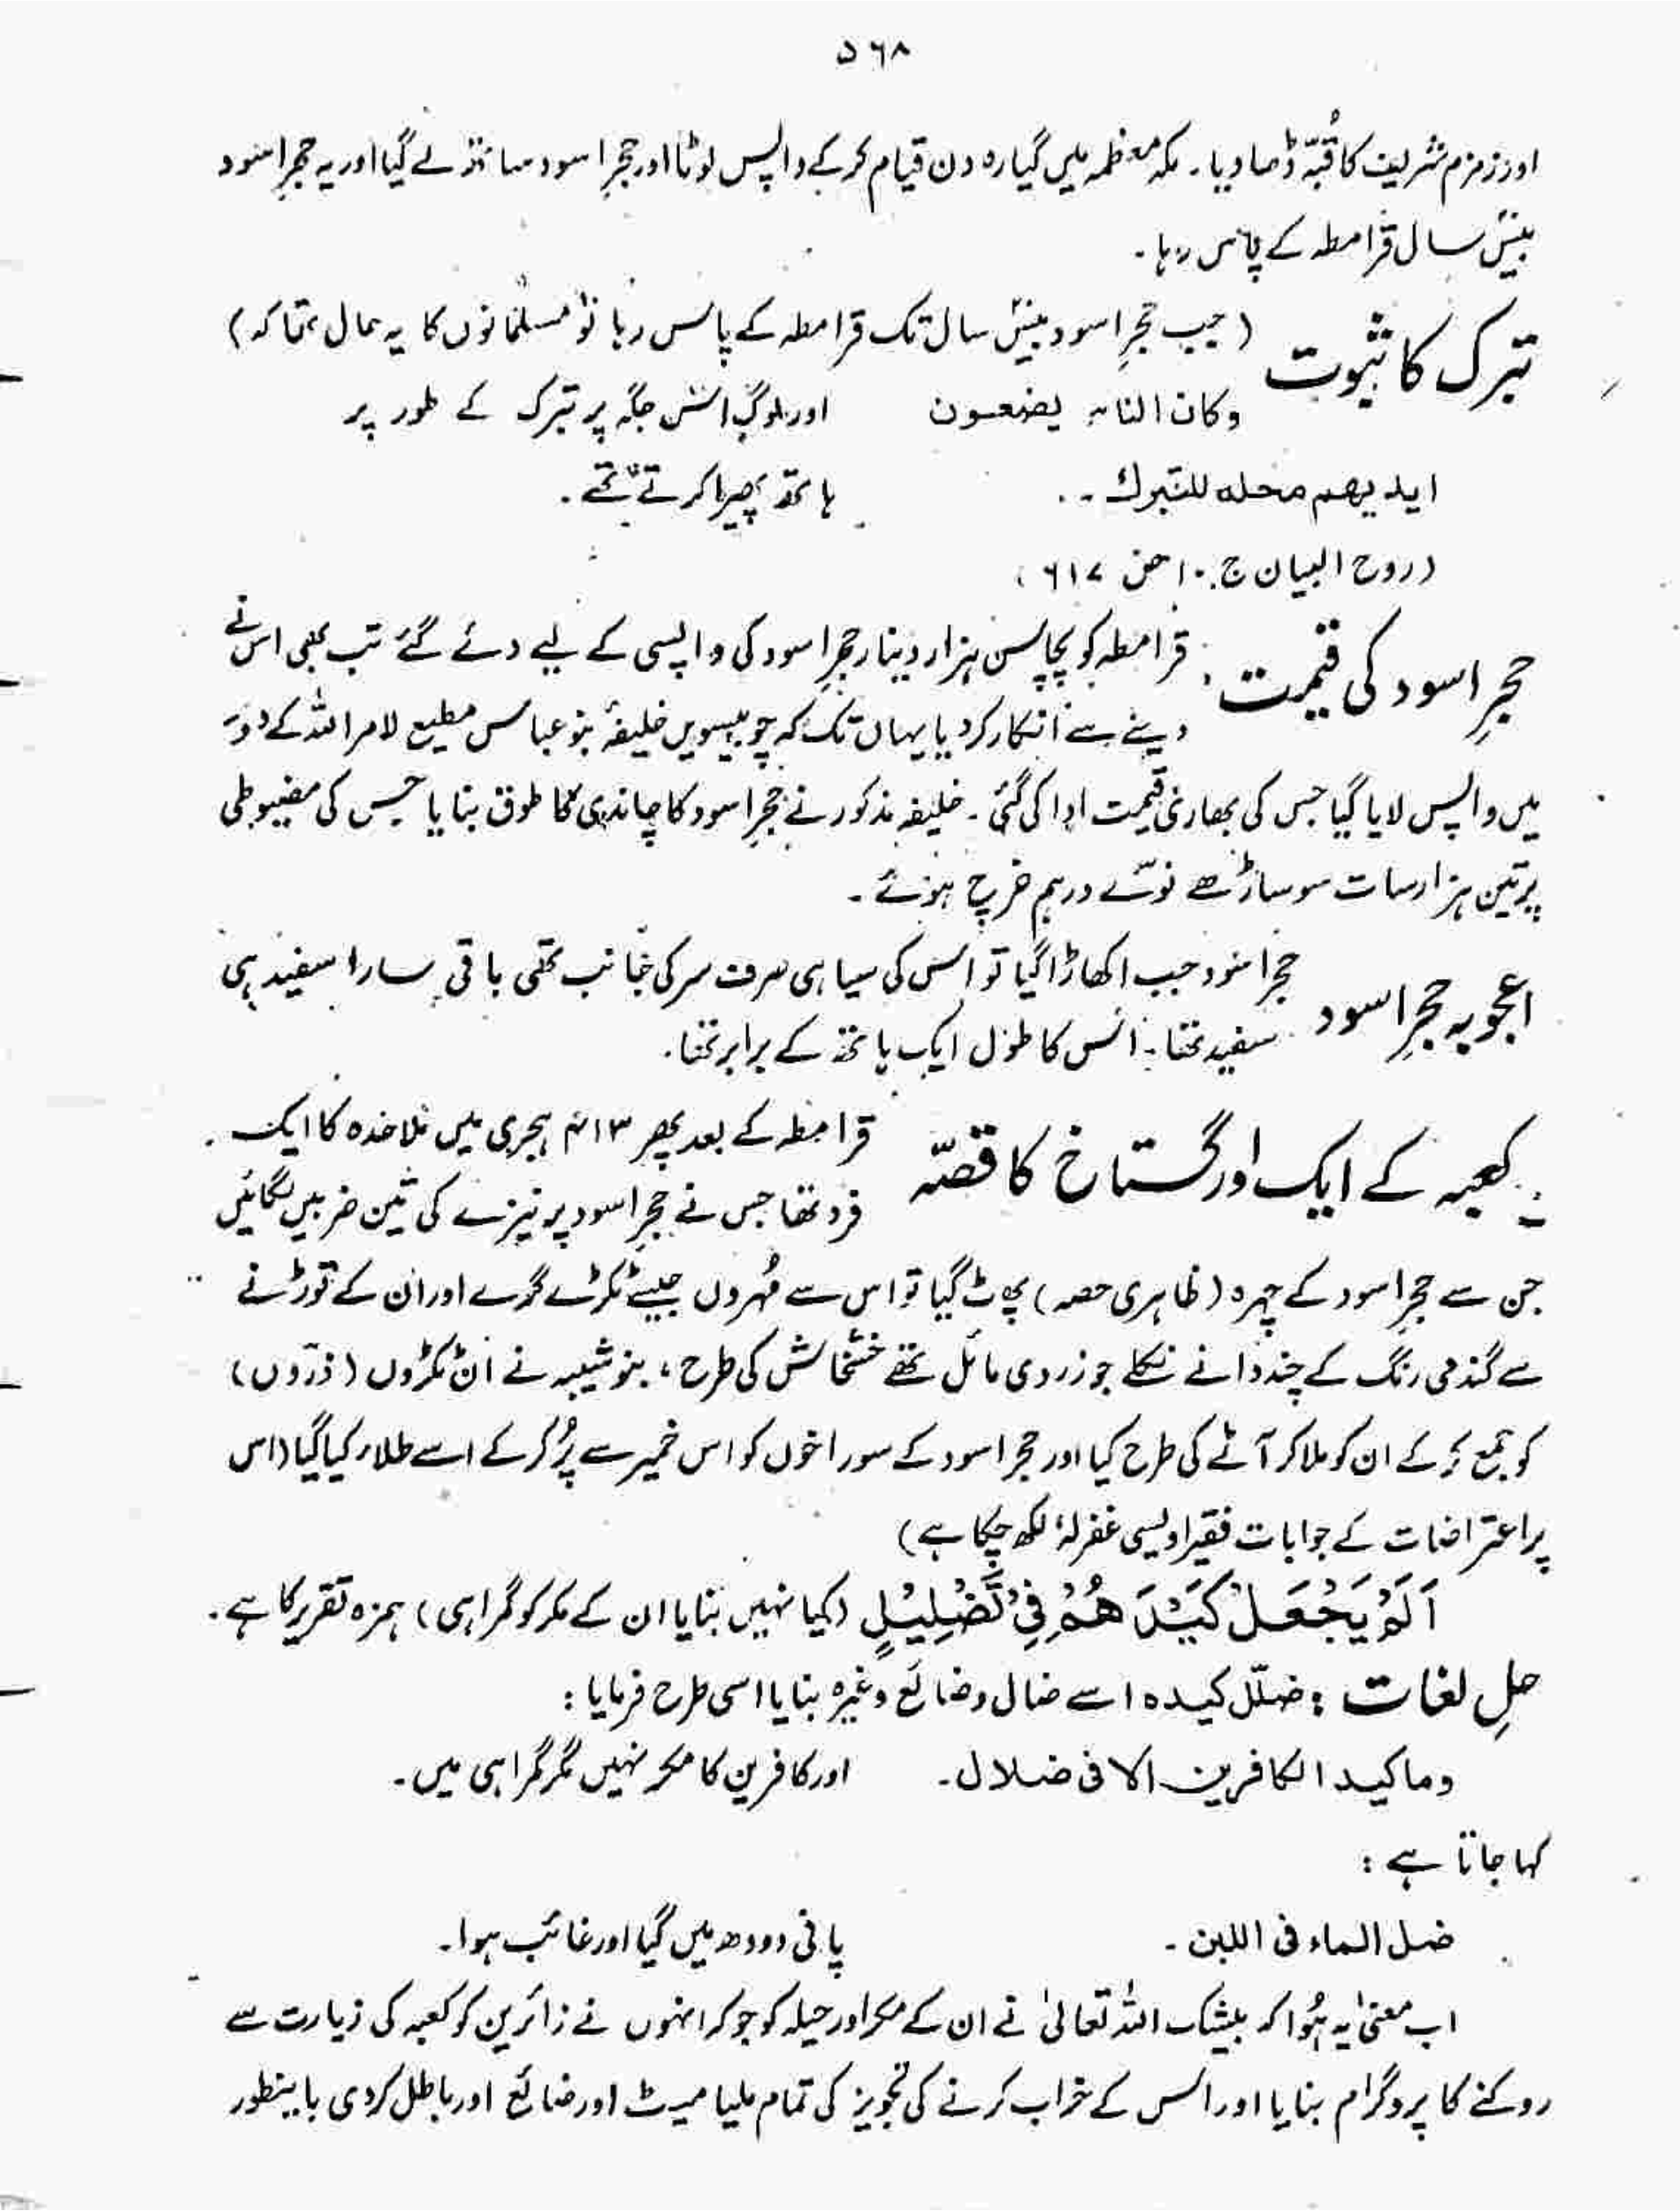 ۵۶۸
اور زمزم شریف کا قُبّہ ڈھا دیا۔ مکہ معظمہ میں گیارہ دن قیام کرکے واپس لوٹا اور حجرِ اسود ساتھ لے گیا اور یہ حجرِ اسود
بیس سال قرامطہ کے پاس رہا۔
تبرک کا ثبوت (جب حجرِ اسود بیس سال تک قرامطہ کے پاس رہا تو مسلمانوں کا یہ حال تھا کہ)
وکان الناس یضعون اور لوگ اس جگہ پر تبرک کے طور پر
ایدیھم محلہ للتبرك۔ ہاتھ پھیرا کرتے تھے۔
(روح البیان ج ۱۰ ص ۶۱۷)
حجرِ اسود کی قیمت قرامطہ کو پچاس ہزار دینار حجرِ اسود کی واپسی کے لیے دئے گئے تب بھی اس نے
دینے سے انکار کردیا یہاں تک کہ چوبیسویں خلیفۂ بنو عباس مطیع لامر اللہ کے دور
میں واپس لایا گیا جس کی بھاری قیمت ادا کی گئی۔ خلیفہ مذکور نے حجرِ اسود کا چاندی کا طوق بنایا جس کی مضبوطی
پر تین ہزار سات سو ساڑھے نوّے درہم خرچ ہوئے۔
اعجوبہ حجرِ اسود حجرِ اسود جب اکھاڑا گیا تو اس کی سیاہی صرف سر کی جانب تھی باقی سارا سفید ہی
سفید تھا۔ اس کا طول ایک ہاتھ کے برابر تھا۔
کعبہ کے ایک اور گستاخ کا قصّہ قرامطہ کے بعد پھر ۴۱۳ ہجری میں ملاحدہ کا ایک
فرد تھا جس نے حجرِ اسود پر نیزے کی تین ضربیں لگائیں
جن سے حجرِ اسود کے چہرہ (ظاہری حصہ) پھٹ گیا تو اس سے مُہروں جیسے ٹکڑے گرے اور ان کے توڑنے
سے گندمی رنگ کے چند دانے نکلے جو زردی مائل تھے خشخاش کی طرح، بنو شیبہ نے ان ٹکڑوں (ذرّوں)
کو جمع کرکے ان کو ملا کر آٹے کی طرح کیا اور حجر اسود کے سوراخوں کو اس خمیر سے پُر کرکے اسے طلاء کیا گیا (اس
پر اعتراضات کے جوابات فقیر اویسی غفرلہٗ لکھ چکا ہے)
اَلَمْ یَجْعَلْ کَیْدَ ھُمْ فِیْ تَضْلِیْلٍ (کیا نہیں بنایا ان کے مکر کو گمراہی) ہمزہ تقریر کا ہے۔
حلِ لغات : ضلّل کیدہ اسے ضال و ضائع وغیرہ بنایا اسی طرح فرمایا :
وما کید الکافرین الا فی ضلال۔ اور کافرین کا مکر نہیں مگر گمراہی میں۔
کہا جاتا ہے :
ضل الماء فی اللبن۔ پانی دودھ میں گیا اور غائب ہوا۔
اب معنیٰ یہ ہُوا کہ بیشک اللہ تعالیٰ نے ان کے مکر اور حیلہ کو جو کہ انہوں نے زائرین کو کعبہ کی زیارت سے
روکنے کا پروگرام بنایا اور اس کے خراب کرنے کی تجویز کی تمام ملیا میٹ اور ضائع اور باطل کردی باینطور